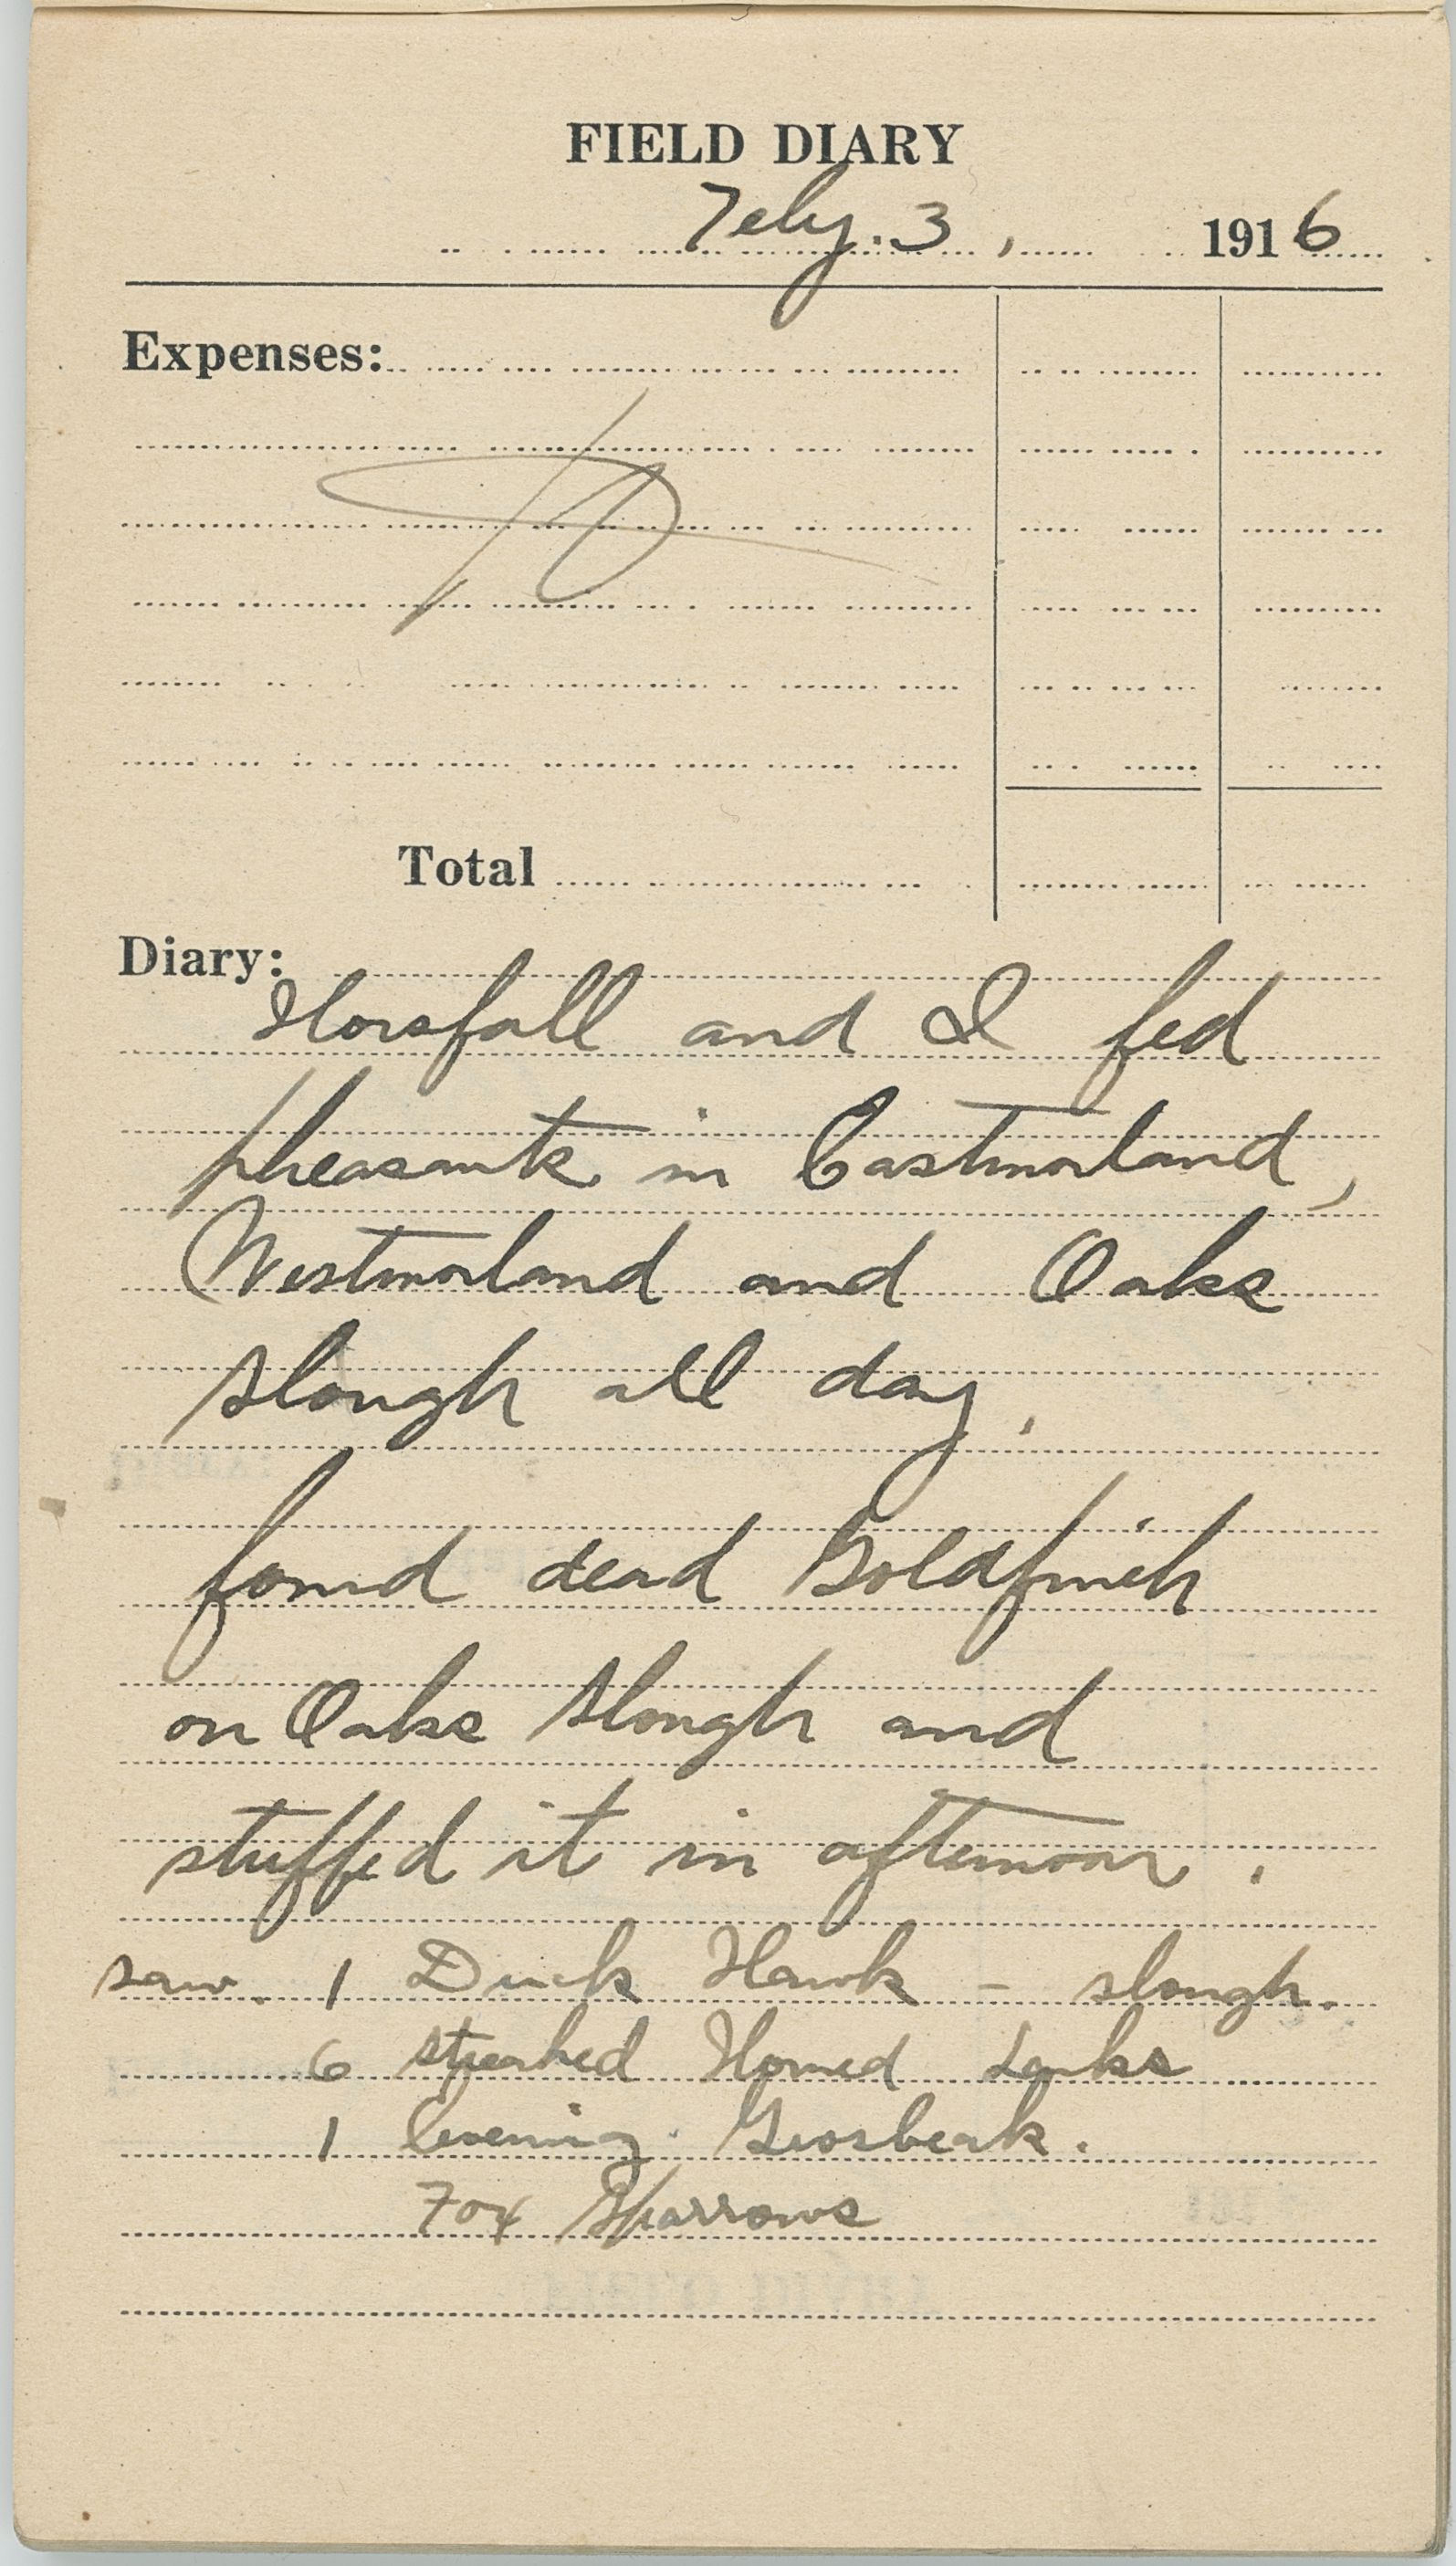 FIELD DIARY
Feby. 3, 1916
Expenses:
Total
Diary:
Horsfall and I fed
pheasants in Eastmorland,
Westmorland and Oaks
slough all day.
found dead Goldfinch
on Oaks Slough and
stuffed it in afternoon.
saw. 1 Duck Hawk - slough.
6 streaked Horned Larks
1 Evening Grosbeak.
Fox Sparrows